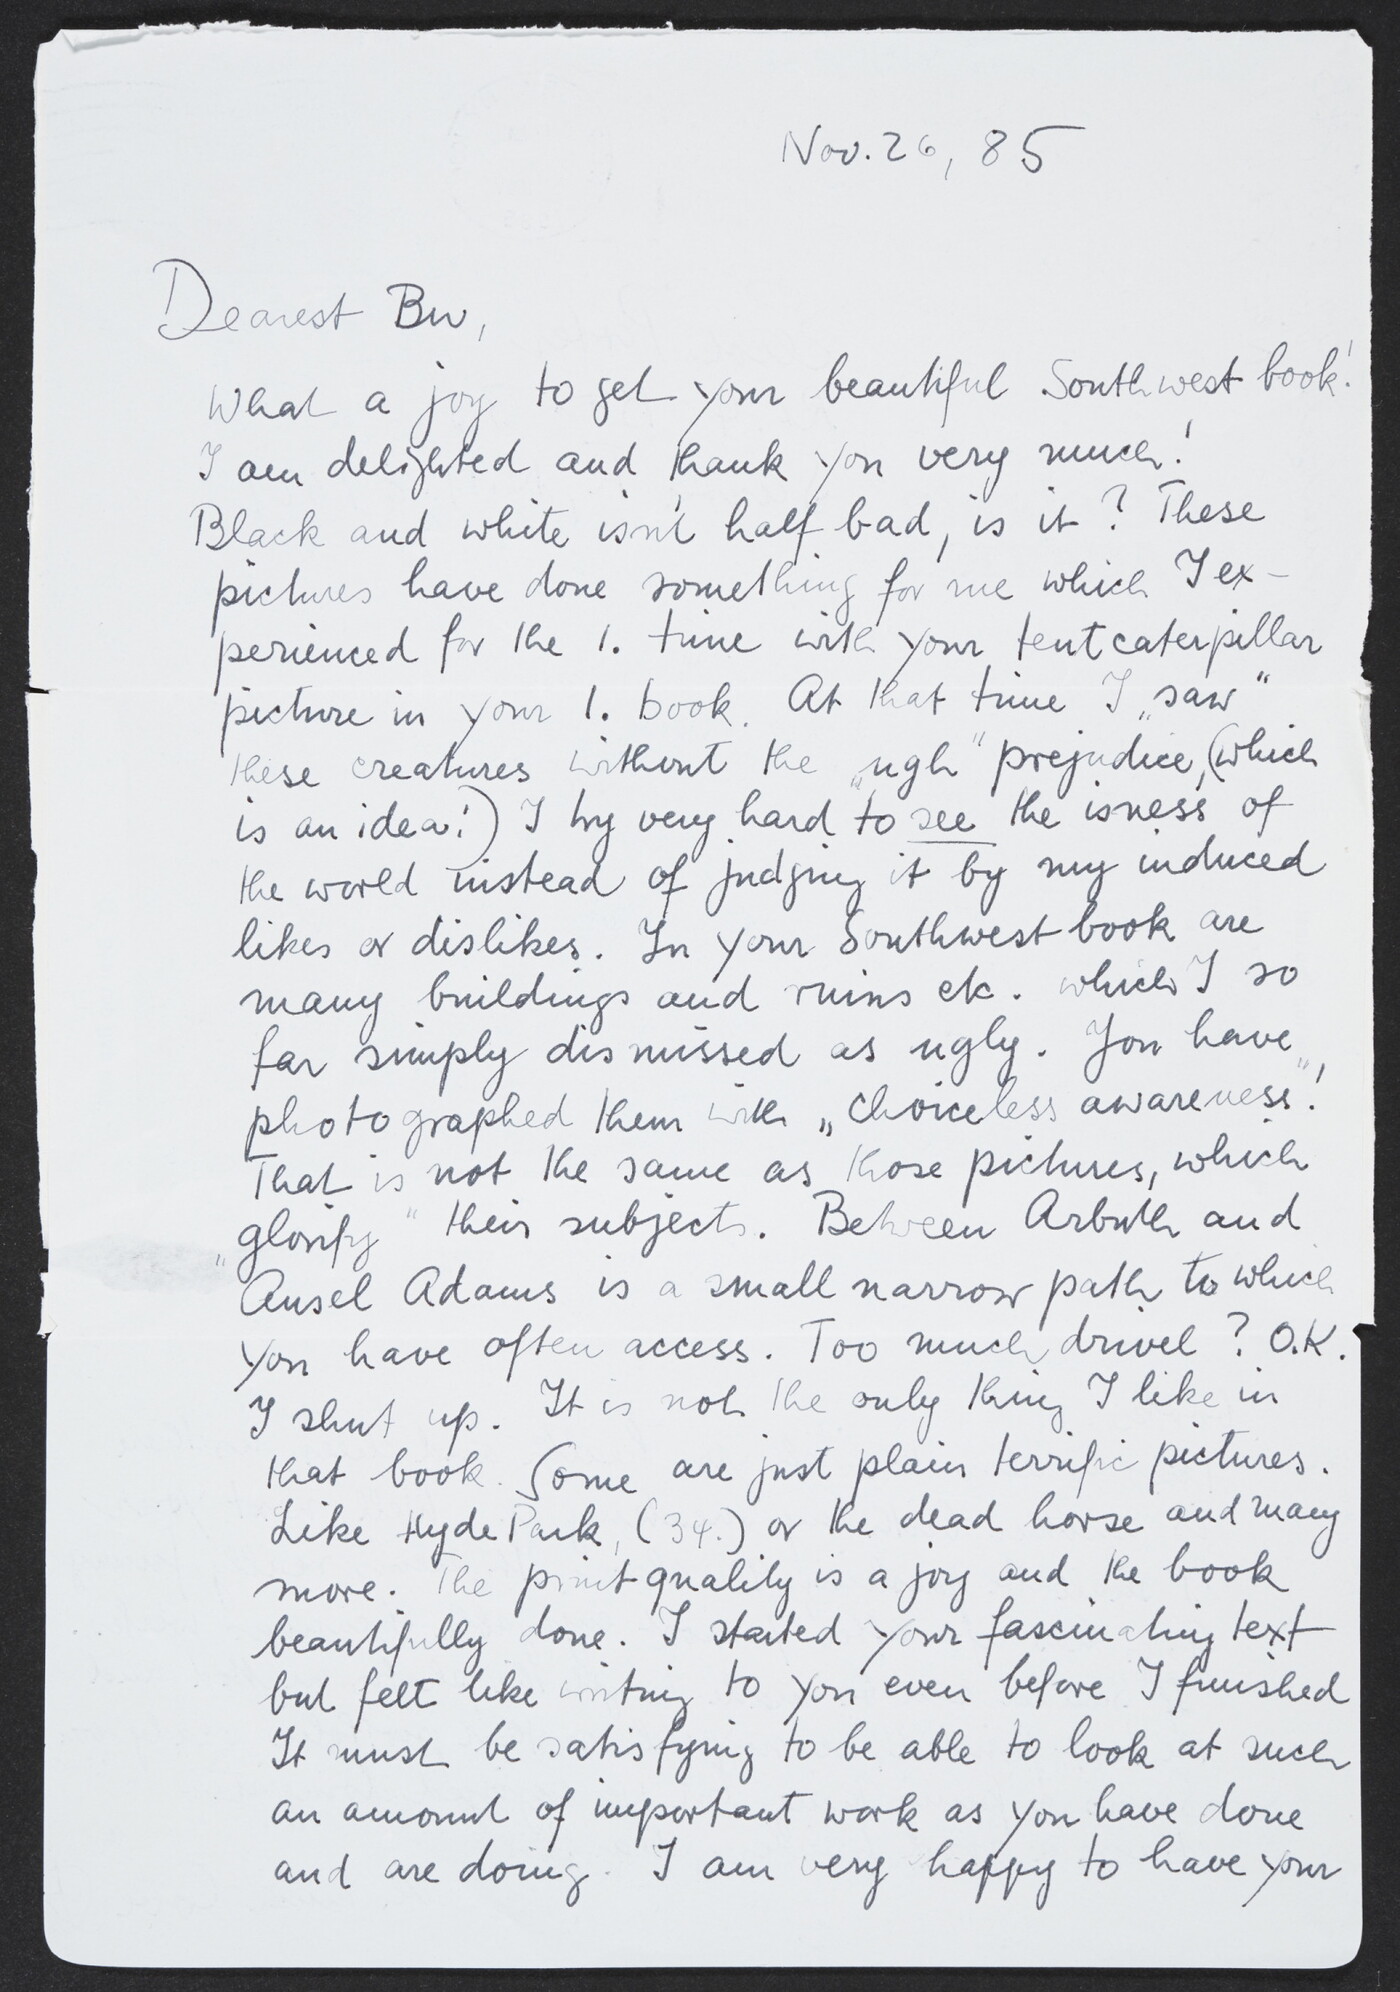 Nov. 26, 85
Dearest Bev,
What a joy to get your beautiful Southwest book!
I am delighted and thank you very much!
Black and white isn't half bad, is it? These
pictures have done something for me which I ex-
perienced for the 1. time with your tent caterpillar
picture in your 1. book. At that time I „saw"
these creatures without the „ugh" prejudice, (which
is an idea!) I try very hard to see the „isness" of
the world instead of judging it by my induced
likes or dislikes. In your Southwest book are
many buildings and ruins etc. which I so
far simply dismissed as ugly. You have
photographed them with „choiceless awareness"!
That is not the same as those pictures, which
„glorify" their subjects. Between Arbuth and
Ansel Adams is a small narrow path to which
you have often access. Too much drivel? O.K.
I shut up. It is not the only thing I like in
that book. Some are just plain terrific pictures.
Like Hyde Park, (34.) or the dead horse and many
more. The print quality is a joy and the book
beautifully done. I started your fascinating text
but felt like writing to you even before I finished
It must be satisfying to be able to look at such
an amount of important work as you have done
and are doing. I am very happy to have your